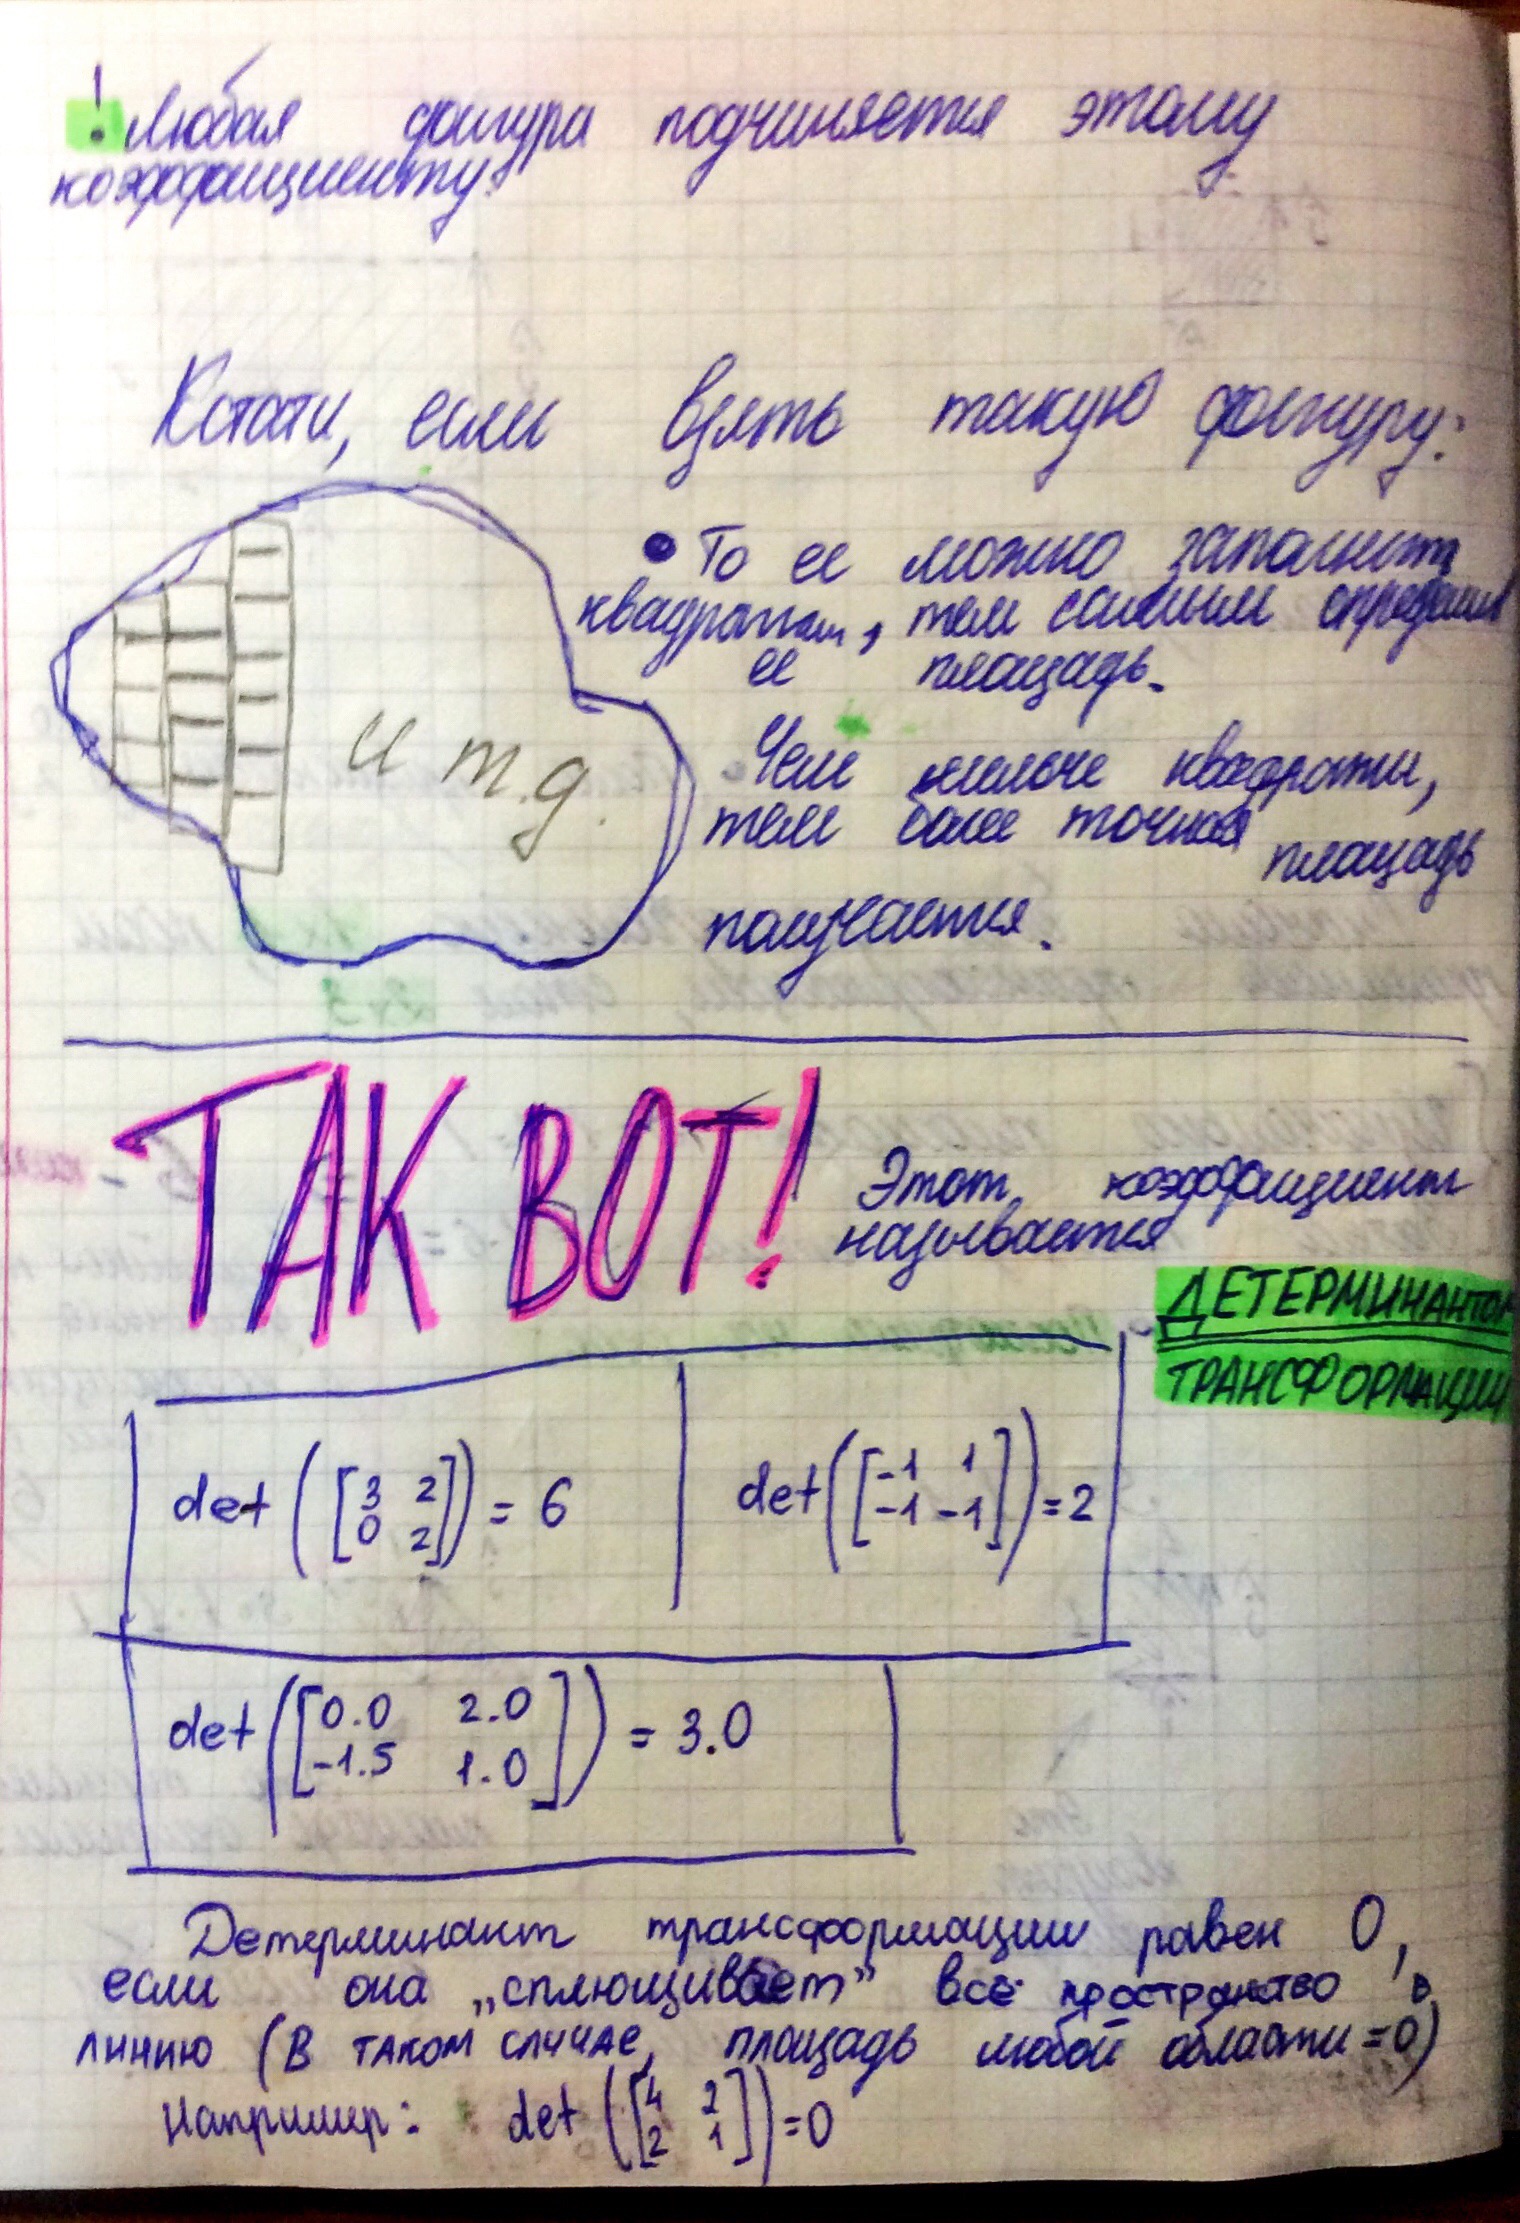 ! Любая фигура подчиняется этому
коэффициенту.
Кстати, если взять такую фигуру:
и т.д.
• То ее можно заполнить
квадратами, тем самым определив
ее площадь.
Чем мельче квадраты,
тем более точная площадь
получается.
ТАК ВОТ!
Этот коэффициент
называется
ДЕТЕРМИНАНТОМ
ТРАНСФОРМАЦИИ
det ([3 2
0 2]) = 6
det ([-1 1
-1 -1]) = 2
det ([0.0 2.0
-1.5 1.0]) = 3.0
Детерминант трансформации равен 0,
если она „сплющивает” всё пространство в
линию (В таком случае, площадь любой области = 0)
Например: det ([4 2
2 1]) = 0